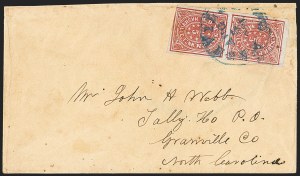 Mr John H Webb
Tally Ho P.O.
Granville Co
North Carolina